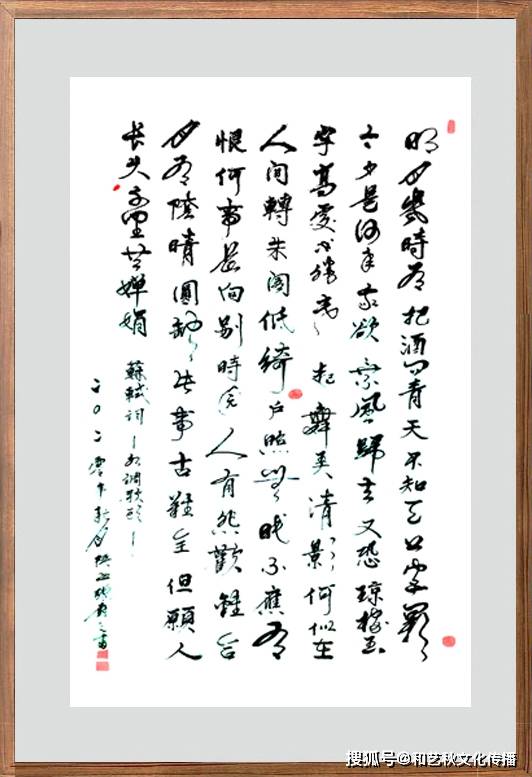 明月幾時有把酒问青天不知天上宫阙
今夕是何年我欲乘風歸去又恐瓊樓玉
宇高處不勝寒起舞弄清影何似在
人间轉朱阁低綺户照無眠不應有
恨何事長向别時圆人有悲歡離合
月有陰晴圓缺此事古難全但願人
长久千里共婵娟 蘇軾词水调歌头
二〇二零年秋月
搜狐号@和艺秋文化传播